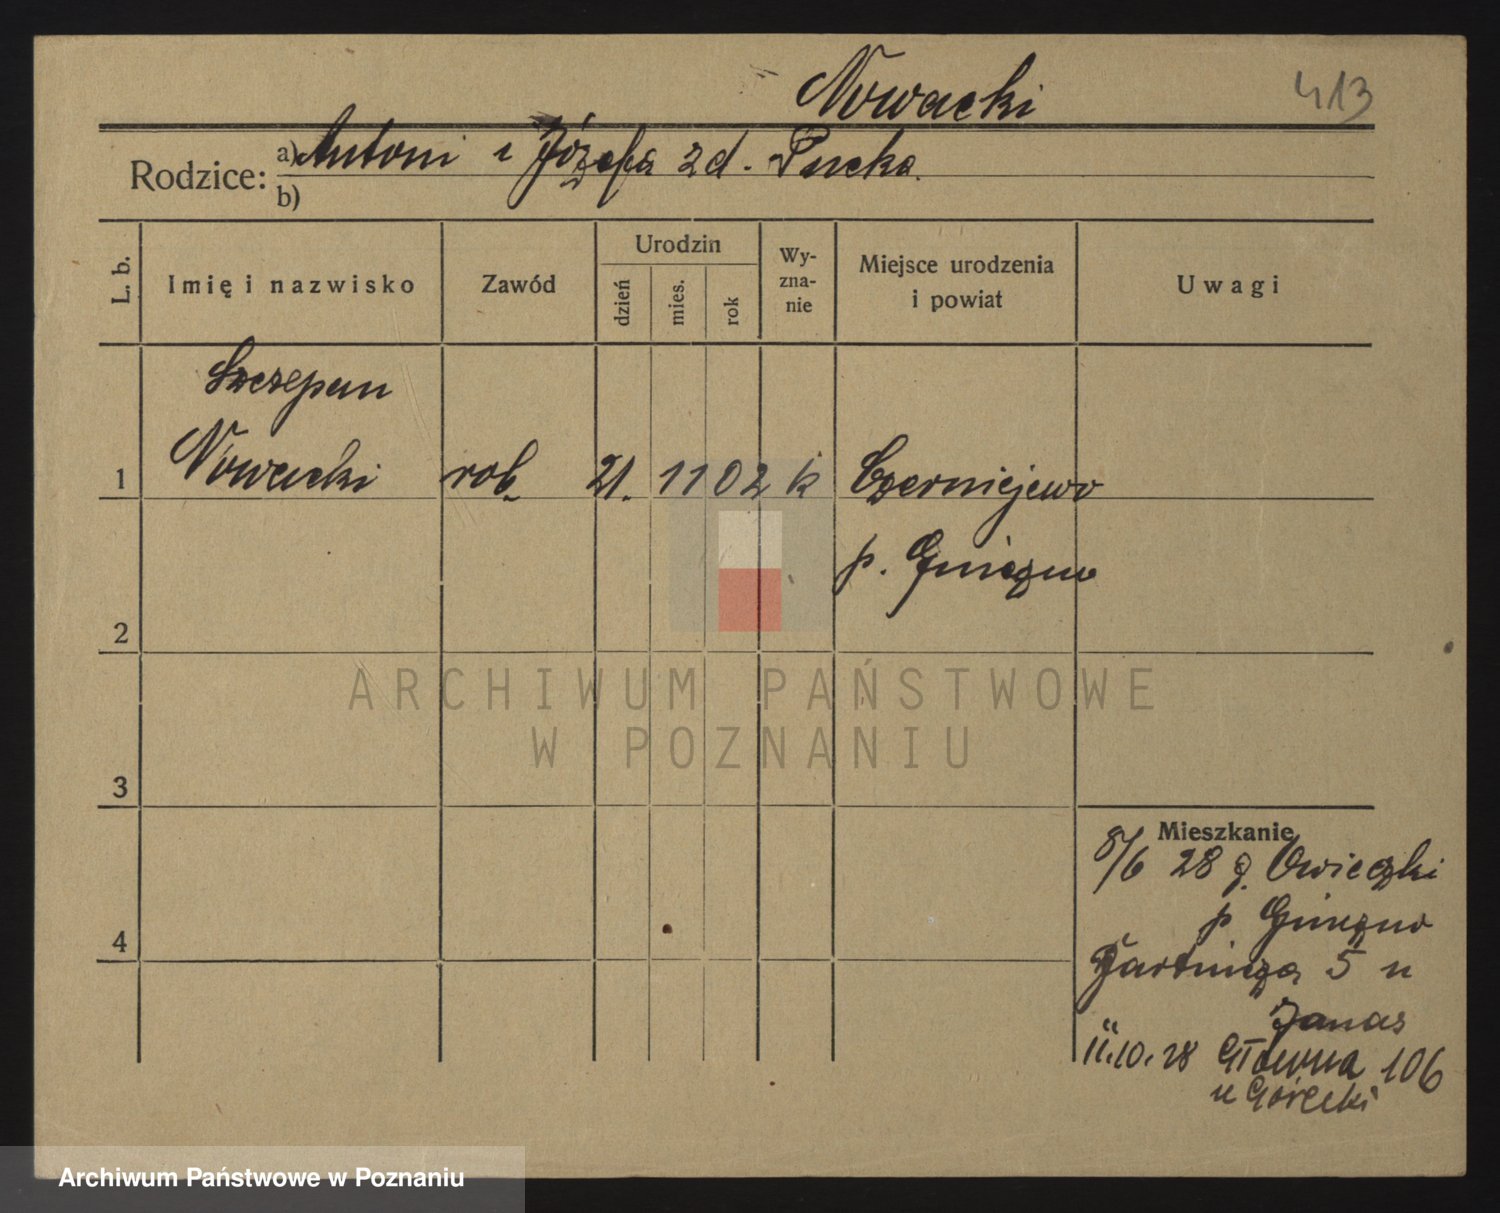 Nowacki
413
Rodzice: a) Antoni i Józefa zd. Pucka.
b)
L. b.
Imię i nazwisko
Zawód
Urodzin
dzień
mies.
rok
Wy-
zna-
nie
Miejsce urodzenia
i powiat
Uwagi
Szczepan
1 Nowacki rob. 21. 11 02 k Czerniejewo
p. Gniezno
2
ARCHIWUM PAŃSTWOWE
W POZNANIU
3
Mieszkanie
8/6 28 z Owieczki
p Gniezno
4
5 u
Janas
11.10.28 Główna 106
u Górecki
Archiwum Państwowe w Poznaniu